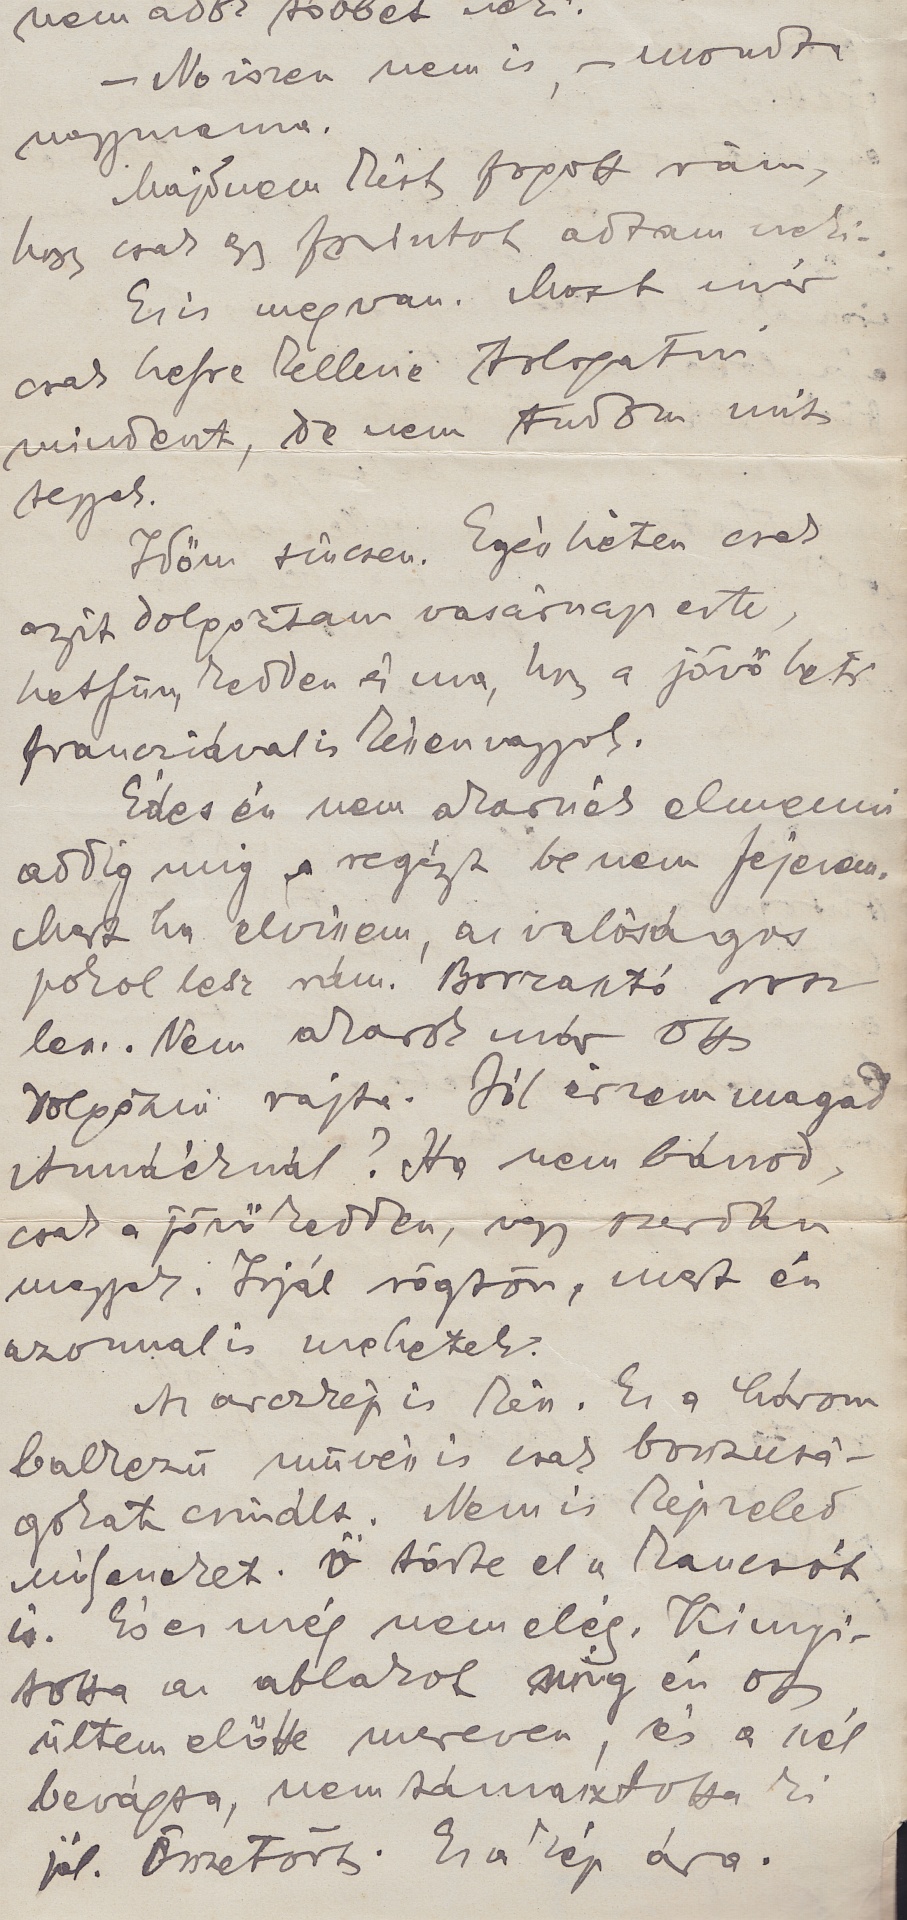 nem adok többet neki.
— No iszen nem is, — mondta
nagymama.
Majdnem kést fogott rám,
hogy csak egy forintot adtam neki.
Ez is megvan. Most már
csak helyre kellene tologatni
mindent, de nem tudom mit
tegyek.
Időm sincsen. Egész héten csak
azért dolgoztam vasárnap este,
hetfün, kedden és ma, hogy a jövő heti
francziával is készen vagyok.
Édes én nem akarnék elmenni
addig mig a regényt be nem fejezem.
Mert ha elviszem, az valóságos
pokol lesz rám. Borzasztó rossz
lesz. Nem akarok már ott
dolgozni rajta. Jól érzem magad
Annáéknál? Ha nem bánod,
csak a jövő kedden, vagy szerdán
megyek. Irjál rögtön, mert én
azonnal is mehetek.
Az arczkép is kész. Ez a három
balkezü müvész is csak bosszúsá-
gokat csinált. Nem is képzeled
milyeneket. Ő törte el a kancsót
is. És ez még nem elég. Kinyi-
totta az ablakot mig én ott
ültem előtte mereven, és a szél
bevágta, nem támasztotta ki
jól. Összetört. Ez a kép ára.